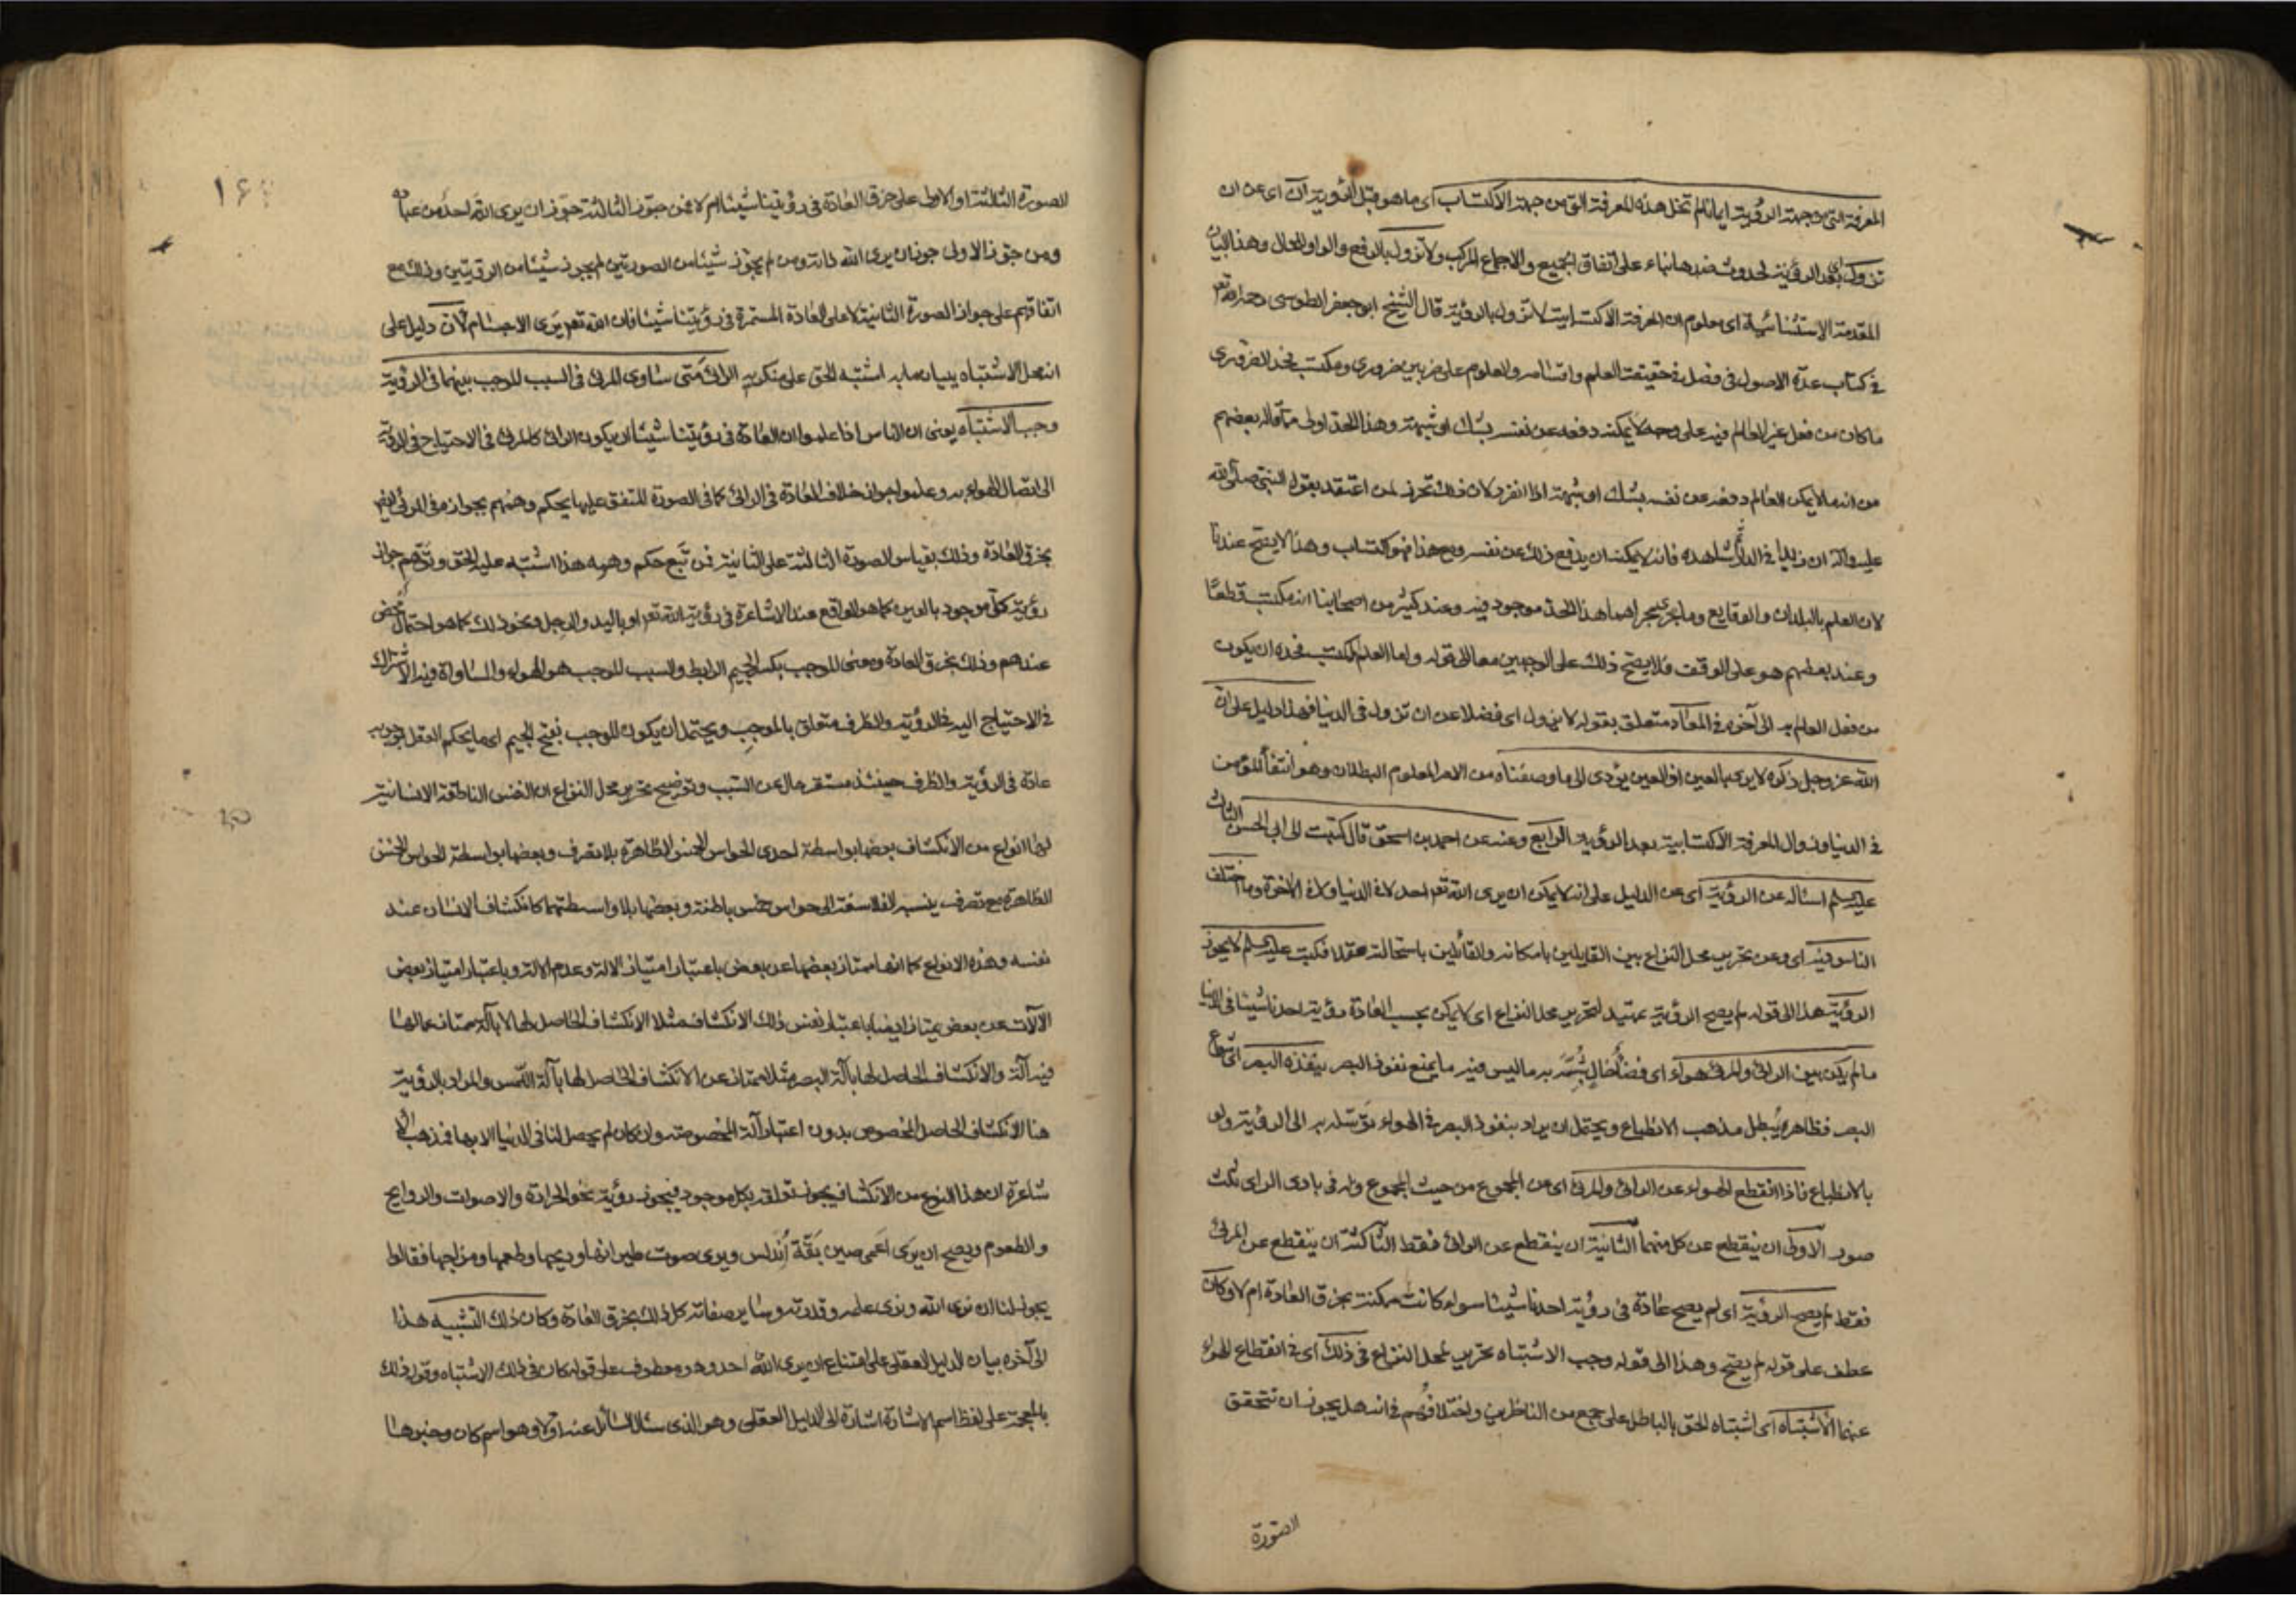 المعرفة التي من جهة الرؤية ايمانا لم تخل هذه المعرفة التي من جهة الاكتساب اى ما هو قبل الرؤية اى عن ان
تزول بعد الرؤية لحدوث ضدها بناء على اتفاق الجميع والاجماع المركب ولا تزول بالرفع والواو للحال وهذا لبيان
المقدمة الاستثنائية اى معلوم ان المعرفة الاكتسابية لا تزول بالرؤية قال الشيخ ابو جعفر الطوسى رحمه الله تعـ
فى كتاب عدة الاصول فى فصل فى حقيقة العلم واقسامه والعلوم على ضربين ضرورى ومكتسب فحد الضرورى
ما كان من فعل غير العالم فيه على وجه لا يمكنه دفعه عن نفسه بشك او شبهة وهذا الحد اولى مما قاله بعضهم
من انه ما لا يمكن العالم دفعه عن نفسه بشك او شبهة اذا انفرد لان ذلك تحرز لمن اعتقد بقول النبى صلى الله
عليه وآله ان زيدا فى الدار ثم شاهده فانه لا يمكنه ان يدفع ذلك عن نفسه ومع هذا فهو اكتساب وهذا لا يصح عندنا
لان العلم بالبلدان والوقايع وما جرى مجراهما هذا الحد موجود فيه وعند كثير من اصحابنا انه مكتسب قطعا
وعند بعضهم هو على الوقف فلا يصح ذلك على الوجهين معا الى قوله واما العلم المكتسب فحده ان يكون
من فعل العالم به الى آخره فى المعاد متعلق بقوله لا يزول اى فضلا عن ان تزول فى الدنيا فهذا دليل على ان
الله عز وجل ذكره لا يرى بالعين اذ العين يؤدى الى ما وصفناه من الامر المعلوم البطلان وهو انتفاء المؤمن
فى الدنيا وزوال المعرفة الاكتسابية بعد الرؤية الرابع وعنه عن احمد بن اسحق قال كتبت الى ابى الحسن الثالث
عليه السلم اسأله عن الرؤية اى عن الدليل على انه لا يمكن ان يرى الله تعـ احد لا فى الدنيا ولا فى الاخرة وما اختلف
الناس فيه اى وعن تحرير محل النزاع بين القايلين بامكانه والقائلين باستحالته عقلا فكتب عليه السلم لا يجوز
الرؤية هذا الى قوله لم يصح الرؤية تمهيد لتحرير محل النزاع اى لا يمكن بحسب العادة رؤية احدنا شيئا فى الدنيا
ما لم يكن بين الرائى والمرئى هواء اى فضاء خال يتميز به ما ليس فيه ما يمنع نفوذ البصر ينفذه البصر اى شعاع
البصر فظاهره يبطل مذهب الانطباع ويحتمل ان يراد بنفوذ البصر فى الهواء توسله به الى الرؤية ولو
بالانطباع فاذا انقطع الهواء عن الرائى والمرئى اى عن المجموع من حيث المجموع وله فى بادى الراى ثلث
صور الاولى ان ينقطع عن كل منهما الثانية ان ينقطع عن الرائى فقط الثالثة ان ينقطع عن المرئى
فقط لم يصح الرؤية اى لم يصح عادة فى رؤية احدنا شيئا سواء كانت ممكنة بخرق العادة ام لا وكان
عطف على قوله لم يصح وهذا الى قوله وجب الاشتباه تحرير لمحل النزاع فى ذلك اى فى انقطاع الهواء
عنهما الاشتباه اى اشتباه الحق بالباطل على جمع من الناظرين واختلافهم فى انه هل يجوز ان تتحقق
الصورة
١۶
الصورة الثالثة او الاولى على خرق العادة فى رؤيتنا شيئا ام لا فمن جوز الثالثة جوز ان يرى الله احد من عباده
ومن جوز الاولى جوز ان يرى الله ذاته ومن لم يجوز شيئا من الصورتين لم يجوز شيئا من الرؤيتين وذلك مع
اتفاقهم على جواز الصورة الثانية لا على العادة المستمرة فى رؤيتنا شيئا فان الله تعـ يرى الاجسام لان دليل على
انه محل الاشتباه ببيان ما به اشتبه الحق على منكريه الرائى متى ساوى المرئى فى السبب الموجب بينهما فى الرؤية
وجب الاشتباه يعنى ان الناس اذا علموا ان العادة فى رؤيتنا شيئا ان يكون الرائى كالمرئى فى الاحتياج فى الرؤية
الى اتصال الهواء به وعلموا جواز خلاف العادة فى الرائى كما فى الصورة المتفق عليها يحكم وهمهم بجوازه فى المرئى ايضا
بخرق العادة وذلك بقياس الصورة الثالثة على الثانية فمن تبع حكم وهمه هذا اشتبه عليه الحق وتوهم جواز
رؤية كل موجود بالعين كما هو الواقع عند الاشاعرة فى رؤية الله تعـ او باليد والرجل ونحو ذلك كما هو احتمال محض
عندهم وذلك بخرق العادة ومعنى الموجب بكسر الجيم الرابط والسبب الموجب هو الهواء والمساواة فيه الاشتراك
فى الاحتياج اليه فى الرؤية والظرف متعلق بالموجب ويحتمل ان يكون الموجب بفتح الجيم اى ما يحكم العقل بوجوبه
عادة فى الرؤية والظرف حينئذ مستقر حال عن السبب وتوضيح تحرير محل النزاع ان النفس الناطقة الانسانية
لها انواع من الانكشاف بعضها بواسطة احدى الحواس الخمس الظاهرة بلا تصرف وبعضها بواسطة الحواس الخمس
الظاهرة مع تصرف ينسبه الفلاسفة الى حواس خمس باطنة وبعضها بلا واسطتهما كانكشاف الانسان عند
نفسه وهذه الانواع كما انها ممتاز بعضها عن بعض باعتبار امتياز الالة وعدم الالة وباعتبار امتياز بعض
الآلات عن بعض يمتاز ايضا باعتبار نفس ذلك الانكشاف مثلا الانكشاف الحاصل لها لا بآلة ممتاز عما لها
فيه آلة والانكشاف الحاصل لها بآلة البصر مثلا ممتاز عن الانكشاف الحاصل لها بآلة اللمس والمراد بالرؤية
هنا الانكشاف الحاصل المخصوص بدون اعتبار آلة المخصوصة وان كان لم يحصل لنا فى الدنيا الا بها فذهب الا
شاعرة ان هذا النوع من الانكشاف يجوز تعلقه بكل موجود فيجوز رؤية نحو الحرارة والاصوات والروايح
والطعوم ويصح ان يرى اعمى صين بقة اندلس ويرى صوت طيرانها وريحها وطعمها ومزاجها فقالوا
يجوز لنا ان نرى الله ونرى علمه وقدرته وساير صفاته كل ذلك بخرق العادة وكان ذلك التشبيه هذا
الى آخره بيان الدليل العقلى على امتناع ان يرى الله احد وهو معطوف على قوله كان فى ذلك الاشتباه وقوله ذلك
بالمعجمة على لفظ اسم الاشارة اشارة الى الدليل العقلى وهو الذى سئل السائل عنه اولا وهو اسم كان وخبرها